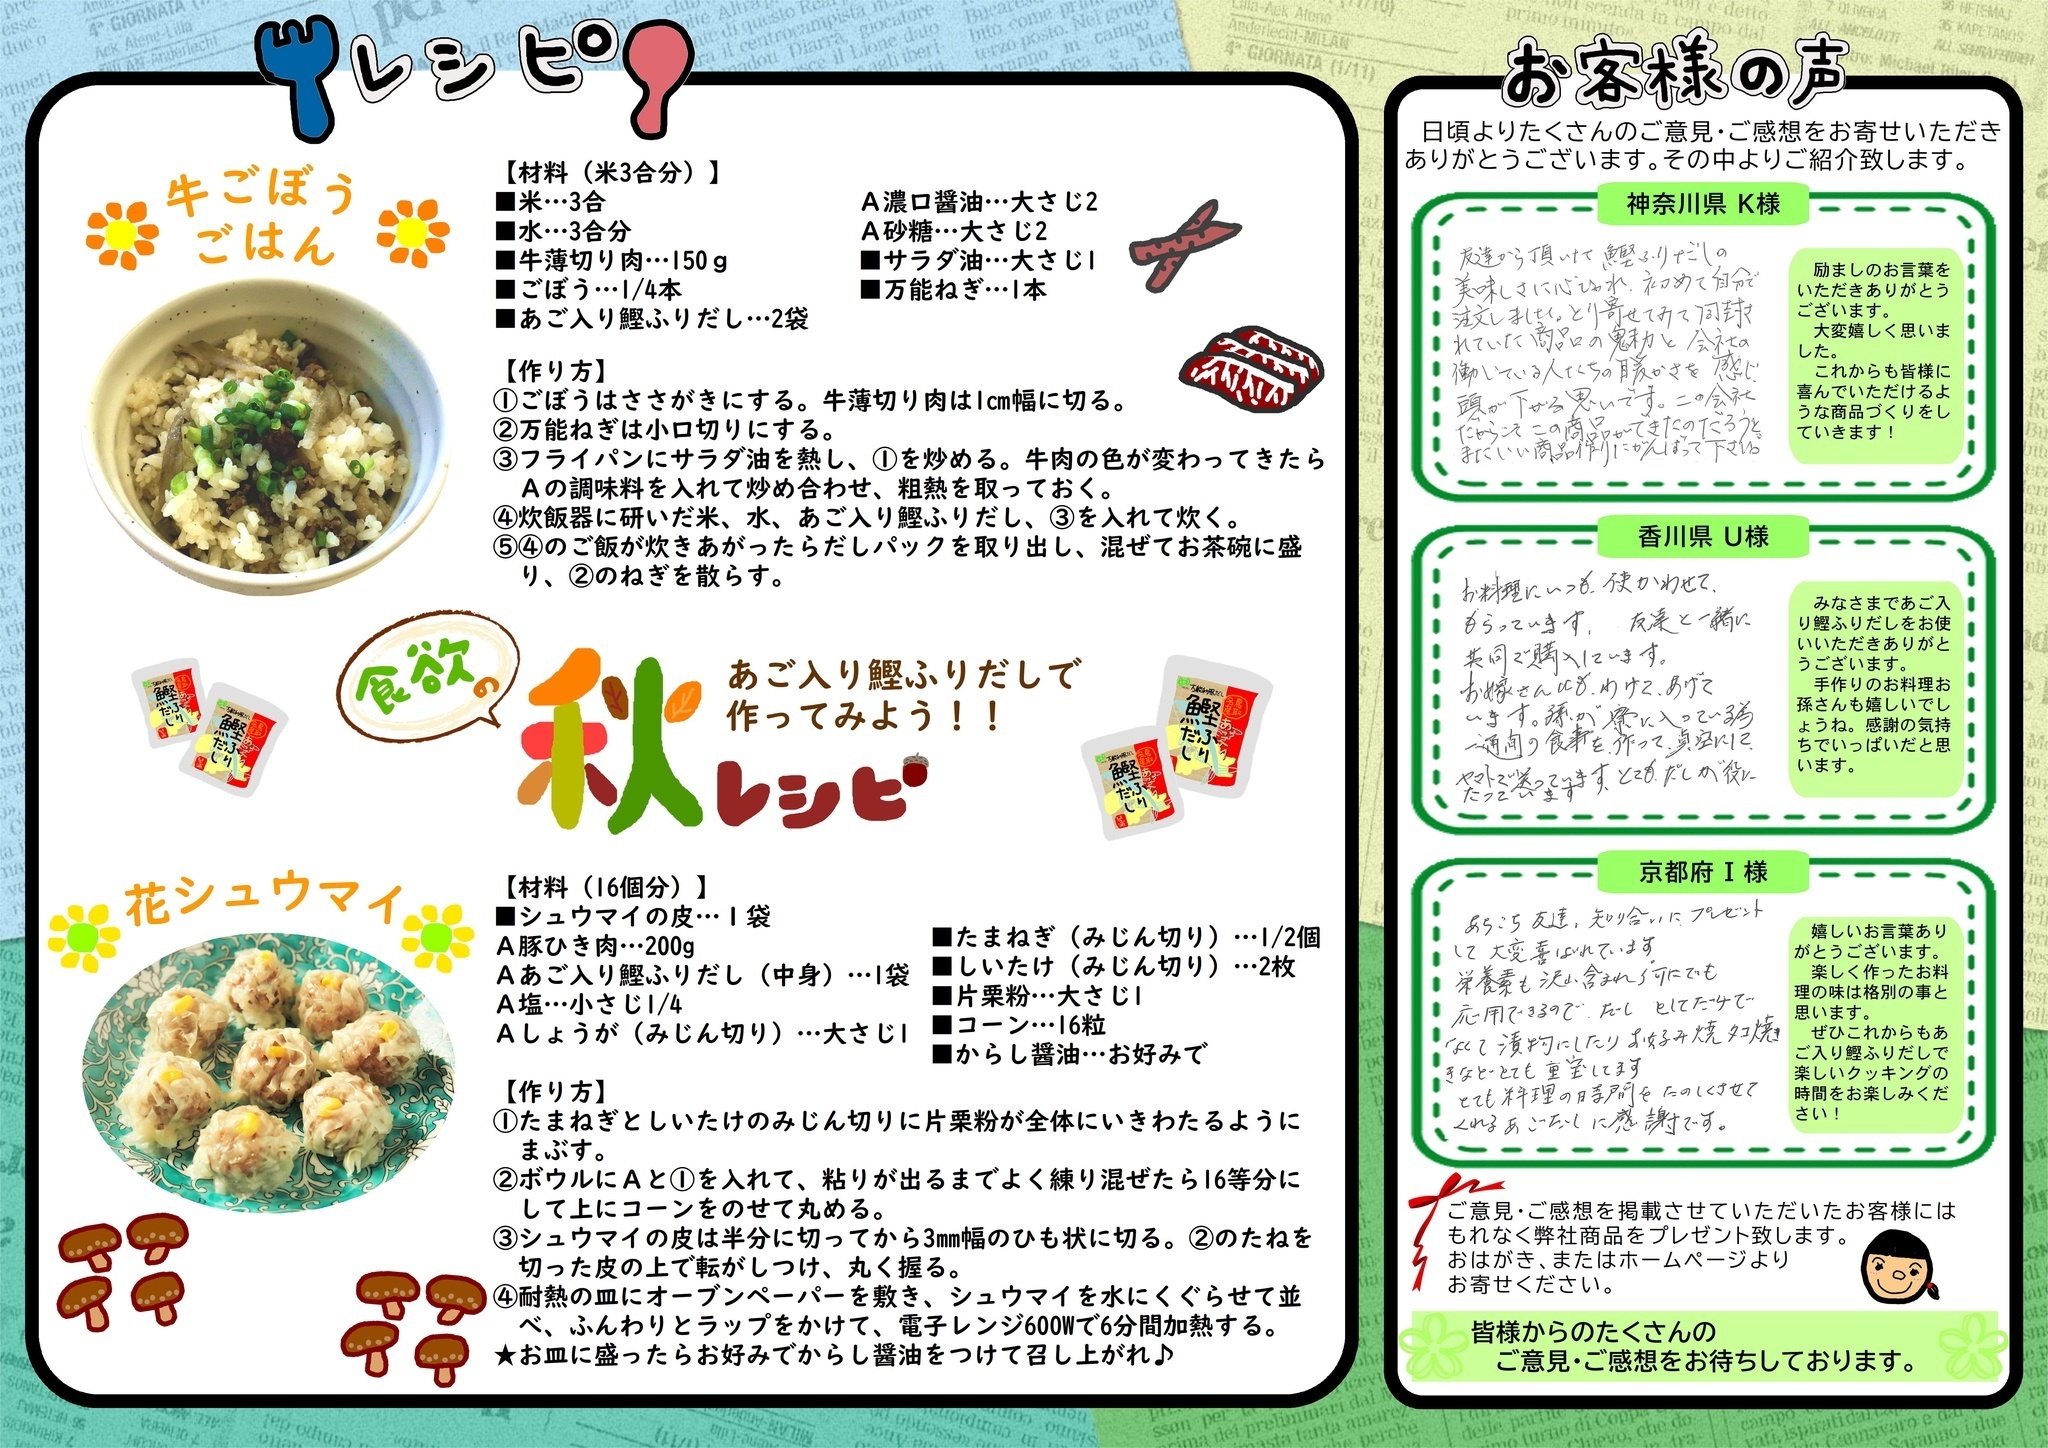 レシピ
牛ごぼう
ごはん
【材料（米3合分）】
■米…3合
■水…3合分
■牛薄切り肉…150ｇ
■ごぼう…1/4本
■あご入り鰹ふりだし…2袋
Ａ濃口醤油…大さじ2
Ａ砂糖…大さじ2
■サラダ油…大さじ1
■万能ねぎ…1本
【作り方】
①ごぼうはささがきにする。牛薄切り肉は1cm幅に切る。
②万能ねぎは小口切りにする。
③フライパンにサラダ油を熱し、①を炒める。牛肉の色が変わってきたら
Ａの調味料を入れて炒め合わせ、粗熱を取っておく。
④炊飯器に研いだ米、水、あご入り鰹ふりだし、③を入れて炊く。
⑤④のご飯が炊きあがったらだしパックを取り出し、混ぜてお茶碗に盛
り、②のねぎを散らす。
食欲の
秋レシピ
あご入り鰹ふりだしで
作ってみよう！！
鰹ふりだし
鰹ふりだし
鰹ふりだし
鰹ふりだし
花シュウマイ
【材料（16個分）】
■シュウマイの皮…１袋
Ａ豚ひき肉…200g
Ａあご入り鰹ふりだし（中身）…1袋
Ａ塩…小さじ1/4
Ａしょうが（みじん切り）…大さじ1
■たまねぎ（みじん切り）…1/2個
■しいたけ（みじん切り）…2枚
■片栗粉…大さじ1
■コーン…16粒
■からし醤油…お好みで
【作り方】
①たまねぎとしいたけのみじん切りに片栗粉が全体にいきわたるように
まぶす。
②ボウルにＡと①を入れて、粘りが出るまでよく練り混ぜたら16等分に
して上にコーンをのせて丸める。
③シュウマイの皮は半分に切ってから3mm幅のひも状に切る。②のたねを
切った皮の上で転がしつけ、丸く握る。
④耐熱の皿にオーブンペーパーを敷き、シュウマイを水にくぐらせて並
べ、ふんわりとラップをかけて、電子レンジ600Wで6分間加熱する。
★お皿に盛ったらお好みでからし醤油をつけて召し上がれ♪
お客様の声
日頃よりたくさんのご意見・ご感想をお寄せいただき
ありがとうございます。その中よりご紹介致します。
神奈川県 K様
友達から頂いて鰹ふりだしの
美味しさに心ひかれ、初めて自分で
注文しました。とり寄せてみて同封さ
れていた商品の魅力と会社の
働いている人たちの暖かさを感じ
頭が下がる思いです。この会社
だからこそこの商品ができたのだろうと。
またいい商品作りにがんばって下さい。
励ましのお言葉を
いただきありがとう
ございます。
大変嬉しく思いま
した。
これからも皆様に
喜んでいただけるよ
うな商品づくりをし
ていきます！
香川県 U様
お料理にいつも使かわせて、
もらっています。友達と一緒に
共同で購入しています。
お嫁さんにも、わけて、あげて
います。孫が寮に入っている為
一週間の食事を、作って、真空にして、
ヤマトで送っています、とても、だしが役に
たっています
みなさまであご入
り鰹ふりだしをお使
いいただきありがと
うございます。
手作りのお料理お
孫さんも嬉しいでし
ょうね。感謝の気持
ちでいっぱいだと思
います。
京都府 I 様
あちこち友達、知り合いにプレゼント
して大変喜ばれています
栄養素も沢山含まれ何にでも
応用できるので、だしとしてだけで
なくて漬物にしたりお好み焼タコ焼き
きなどとても重宝してます
とても料理の時間をたのしくさせて
くれるあごだしに感謝です。
嬉しいお言葉あり
がとうございます。
楽しく作ったお料
理の味は格別の事と
思います。
ぜひこれからもあ
ご入り鰹ふりだしで
楽しいクッキングの
時間をお楽しみくだ
さい！
ご意見・ご感想を掲載させていただいたお客様には
もれなく弊社商品をプレゼント致します。
おはがき、またはホームページより
お寄せください。
皆様からのたくさんの
ご意見・ご感想をお待ちしております。